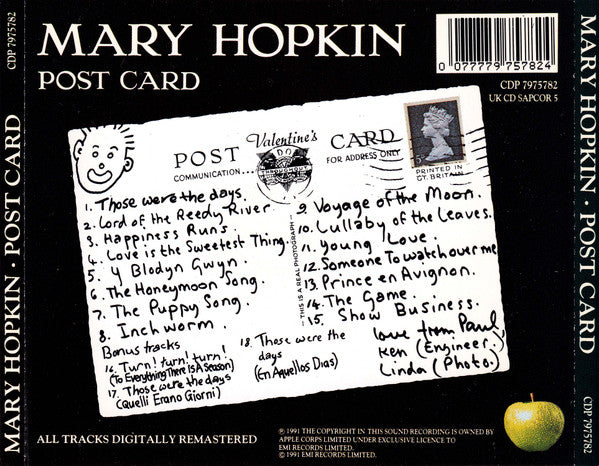 MARY HOPKIN · POST CARD
CDP 7975782
MARY HOPKIN
POST CARD
0 077779 757824
CDP 7975782
UK CD SAPCOR 5
POST Valentine's CARD
COMMUNICATION... FOR ADDRESS ONLY
PRINTED IN
GT. BRITAIN
THIS IS A REAL PHOTOGRAPH
1. Those were the days.
2. Lord of the Reedy River
3. Happiness Runs.
4. Love is the Sweetest Thing.
5. Y Blodyn Gwyn.
6. The Honeymoon Song.
7. The Puppy Song.
8. Inchworm.
Bonus tracks
16. Turn! turn! turn!
(To Everything There IS A Season)
17. Those were the days
(Quelli Erano Giorni)
18. Those were the
days
(En Aquellos Dias)
9. Voyage of the Moon.
10. Lullaby of the Leaves.
11. Young Love.
12. Someone To watch over me
13. Prince en Avignon.
14. The Game.
15. Show Business.
love from Paul
Ken (Engineer.)
Linda (Photo.)
ALL TRACKS DIGITALLY REMASTERED
℗ 1991 THE COPYRIGHT IN THIS SOUND RECORDING IS OWNED BY
APPLE CORPS LIMITED UNDER EXCLUSIVE LICENCE TO
EMI RECORDS LIMITED.
© 1991 EMI RECORDS LIMITED.
MARY HOPKIN · POST CARD
CDP 7975782